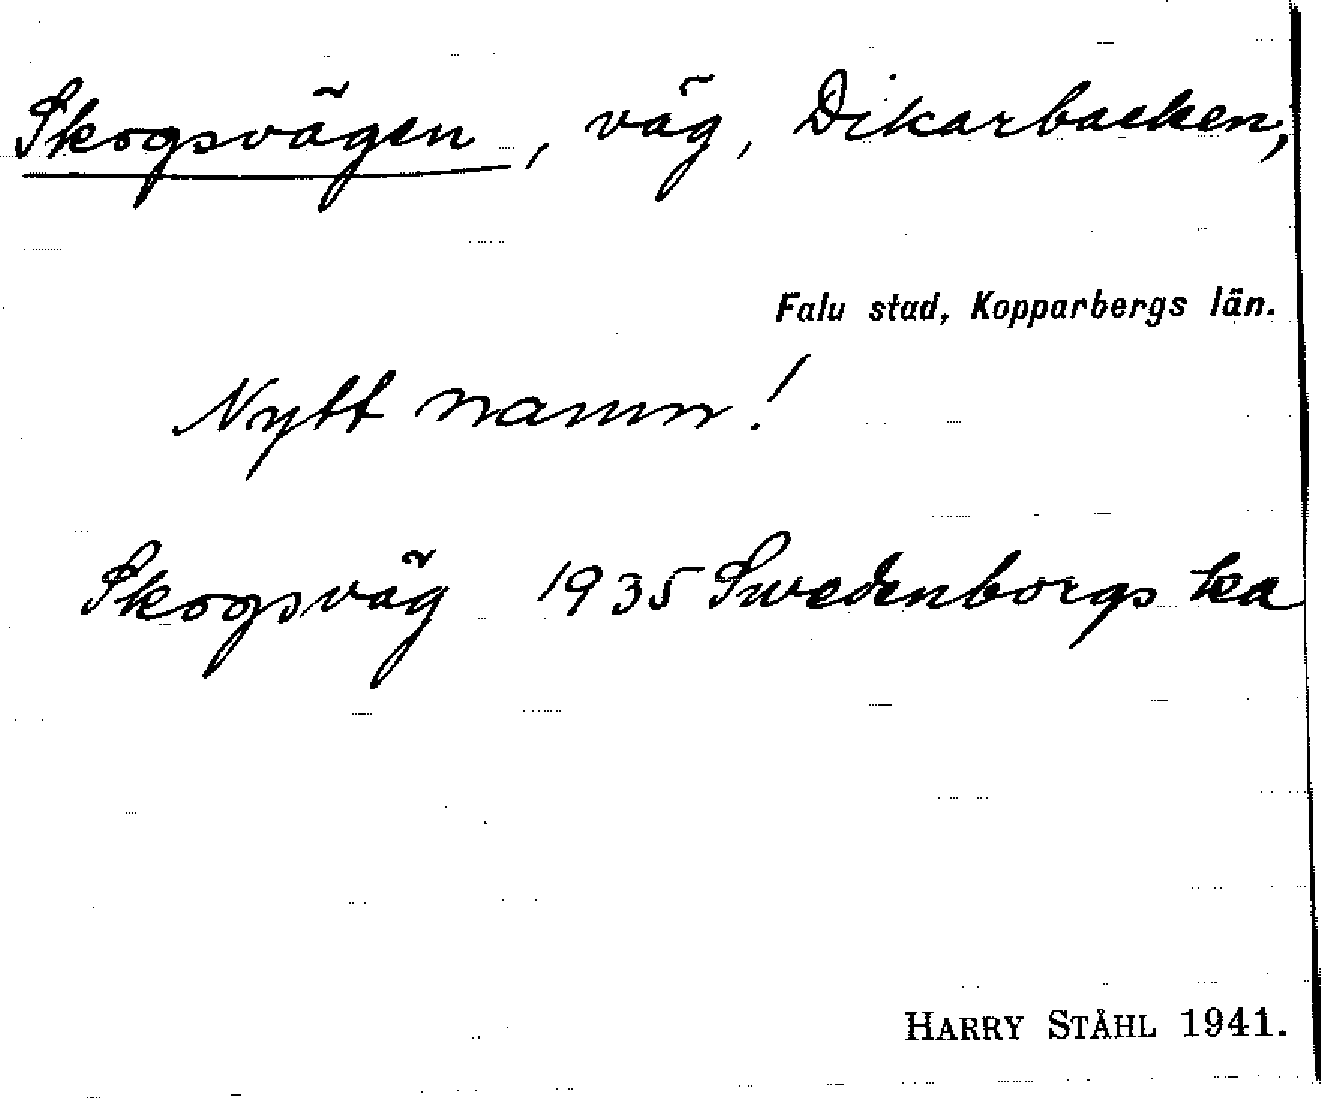 Skogsvägen, väg, Dikarbacken,
Falu stad, Kopparbergs län.
Nytt namn!
Skogsväg 1935 Swedenborgs ka
HARRY STÅHL 1941.